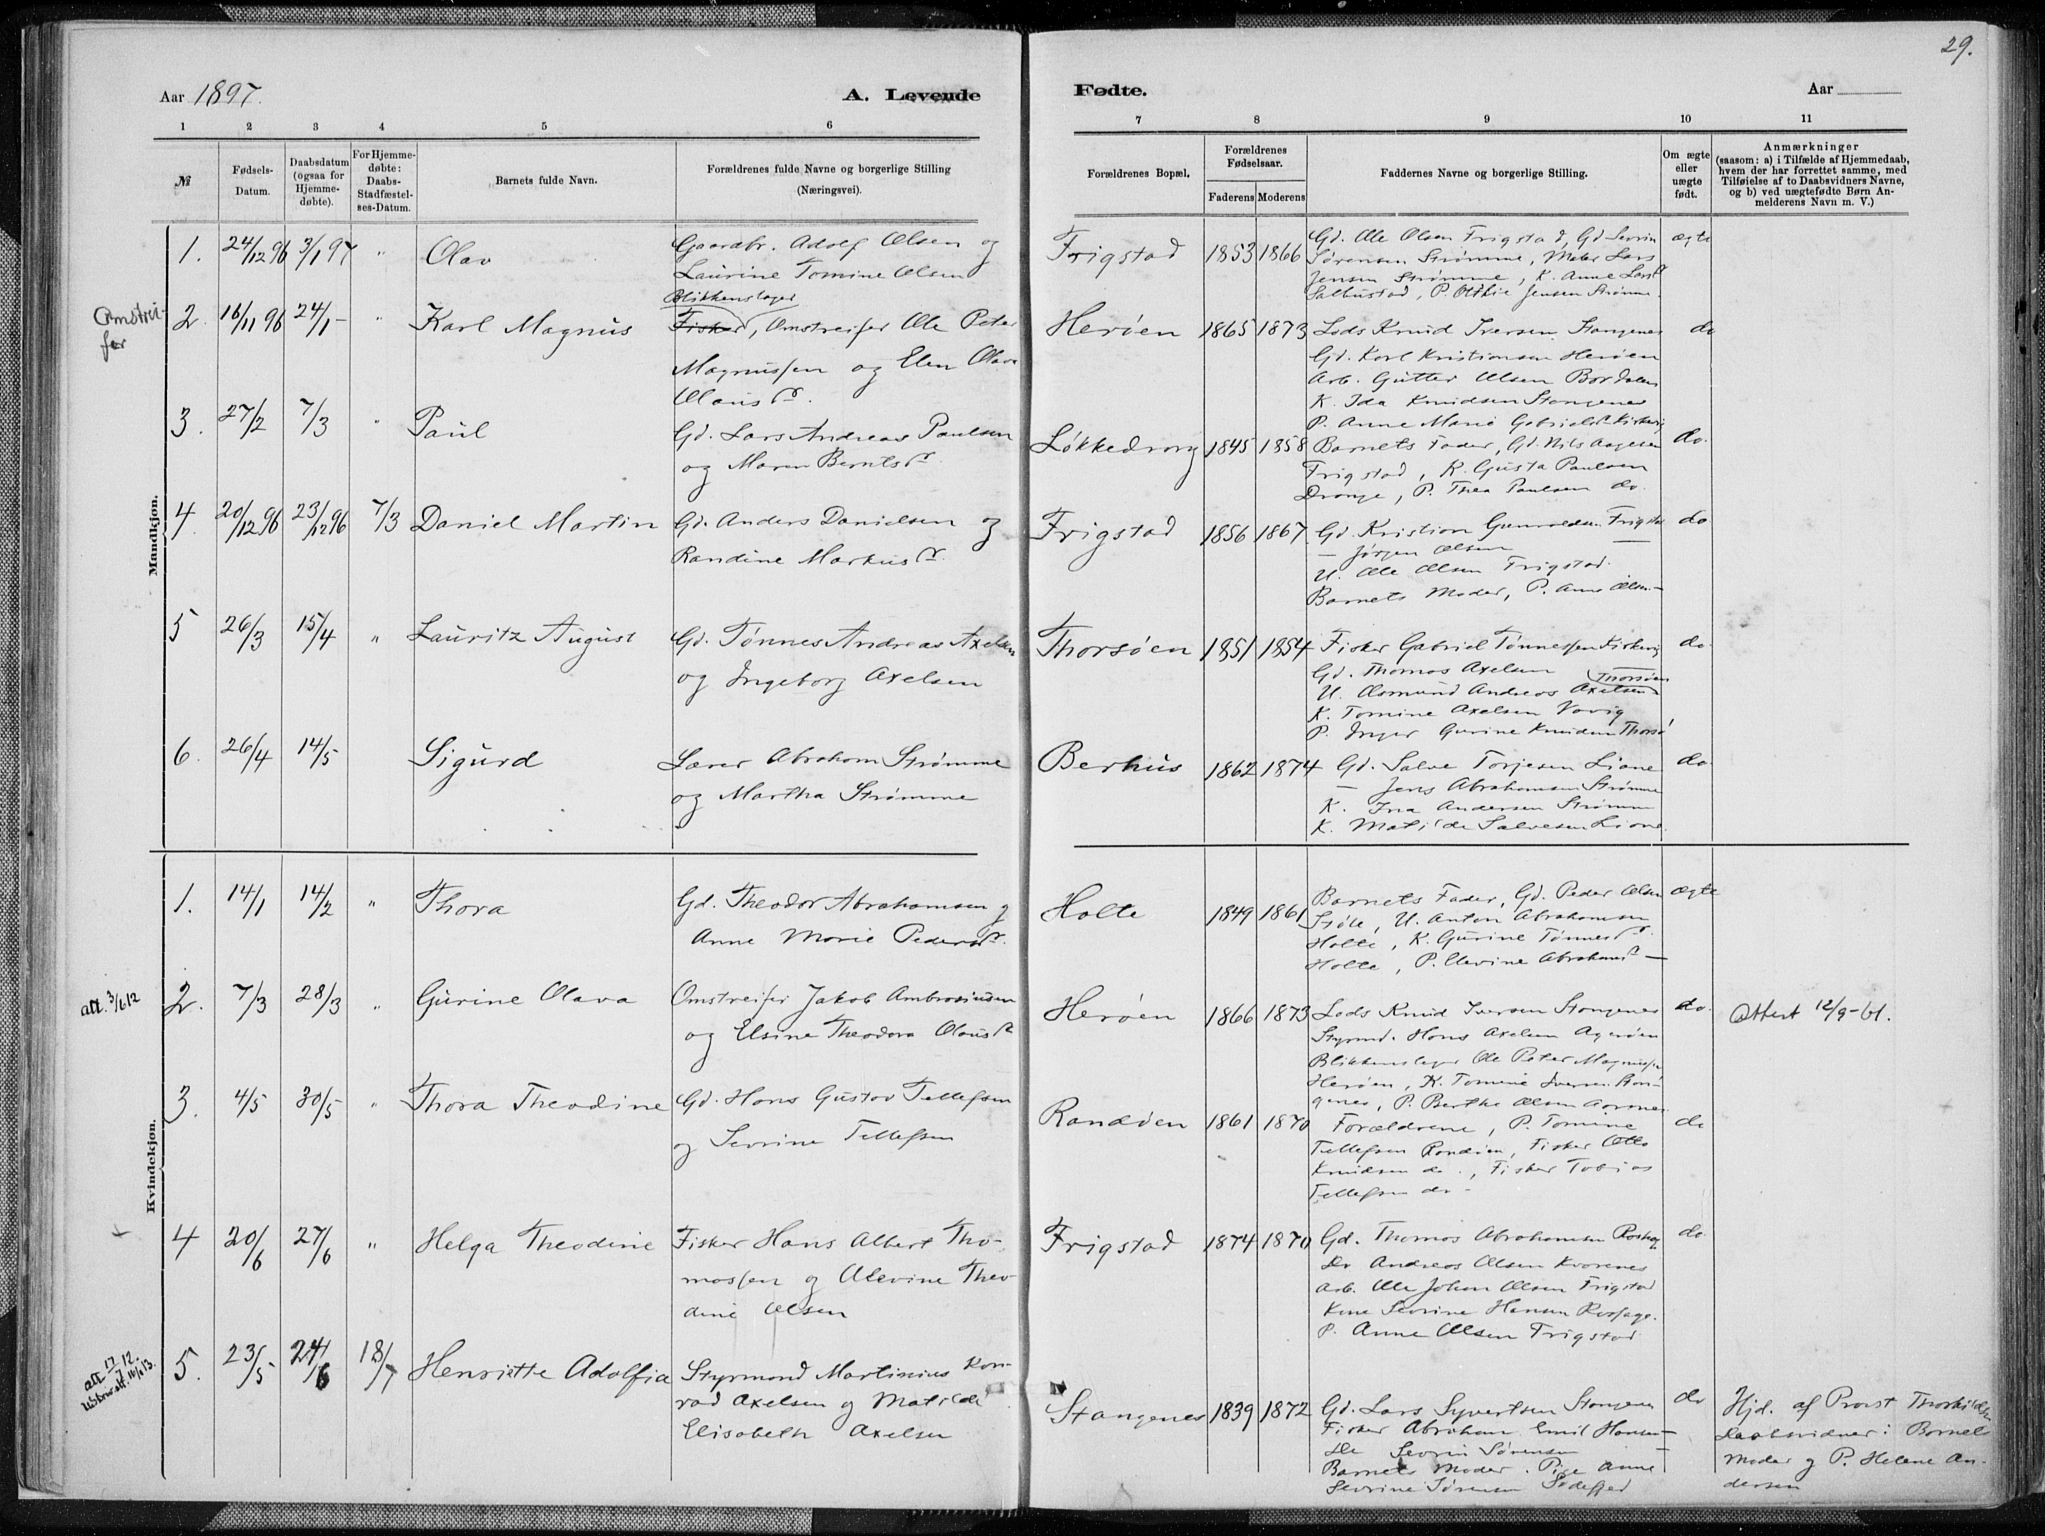 29.
Aar 1897.
A. Levende
Fødte.
Aar
1 2 3 4 5 6 7 8 9 10 11
№
Fødsels-
Datum.
Daabsdatum
(ogsaa for
Hjemme-
døbte).
For Hjemme-
døbte:
Daabs-
Stadfæstel-
ses-Datum.
Barnets fulde Navn.
Forældrenes fulde Navne og borgerlige Stilling
(Næringsvei).
Forældrenes Bopæl.
Forældrenes
Fødselsaar.
Faderens Moderens
Faddernes Navne og borgerlige Stilling.
Om ægte
eller
uægte
født.
Anmærkninger
(saasom: a) i Tilfælde af Hjemmedaab,
hvem der har forrettet samme, med
Tilføielse af to Daabsvidners Navne,
og b) ved uægtefødte Børn An-
melderens Navn m. V.)
Mandkjøn.
1. 24/12 96 3/1 97 " Olav
Gaardbr. Adolf Olsen og
Laurine Tomine Olsen
Frigstad 1853 1866
Gd. Ole Olsen Frigstad, Gd Sevrin
Sørensen Strømme, Maler Lars
Jensen Strømme, K. Anne Lars
P. Othie Jensen Strømme
ægte
Omstrei-
fer
2. 16/11 96 24/1 - " Karl Magnus
Blikkenslager
Fisker, Omstreifer Ole Peter
Magnussen og Elen Olava
Olausdr.
Herøen 1865 1873
Lods Knud Iversen Stangenes
Gd. Karl Kristiansen Herøen
Arb. Gutter Olsen
K. Ida Knudsen Stangenes
P. Anne Marie
do
3. 27/2 7/3 " Paul
Gd. Lars Andreas Paulsen
og Maren Berntsdr.
Løkkedrong 1845 1858
Barnets Fader, Gd. Nils Aagesen
Frigstad, K. Gusta Paulsen
Drange, P. Thea Paulsen do.
do.
4. 20/12 96 23/12 96 7/3 Daniel Martin
Gd. Anders Danielsen og
Randine Markusdr.
Frigstad 1856 1867
Gd Kristian Gunvaldsen Frigstad
— Jørgen Olsen —
U. Ole Olsen Frigstad.
Barnets Moder, P. Anne Olsen —
do
5 26/3 15/4 " Lauritz August
Gd. Tønnes Andreas Axelsen
og Ingeborg Axelsen
Thorsøen 1851 1854
Fisker Gabriel Tønnessen
Gd. Thomas Axelsen Thorsøen
U. Asmund Andreas Axelsen
K. Tomine Axelsen Vavig
P. Inger Gurine Knudsen Thorsø
do.
6. 26/4 14/5 Sigurd
Lærer Abraham Strømme
og Martha Strømme
Berhus 1862 1874
Gd. Salve Torjesen Liane
— Jens Abrahamsen Strømme
K. Ina Andersen Strømme
K. Matilde Salvesen Liane.
do.
Kvindekjøn.
1. 14/1 14/2 " Thora
Gd. Theodor Abrahamsen og
Anne Marie Pedersdr.
Holte 1849 1861
Barnets Fader, Gd. Peder Olsen
Støle, U. Anton Abrahamsen
Holte, K. Gurine Tønnesdr.
Holte, P. Elevine Abrahamsdr —
ægte
att. 3/6 12
2. 7/3 28/3 " Gurine Olava
Omstreifer Jakob Ambrosiusen
og Elsine Theodora Olausdr
Herøen 1866 1873
Lods Knud Iversen Stangenes
Styrmd. Hans Axelsen Agerøen
Blikkenslager Ole Peter Magnussen
Herøen, K. Tomine Iversen Stan-
genes, P. Berthe Olsen
do.
Attest 12/9-61.
3. 4/5 30/5 " Thora Theodine
Gd. Hans Gustav Tellefsen
og Sevrine Tellefsen
Randøen 1861 1870
Forældrene, P. Tomine
Tellefsen Randøen, Fisker Otto
Knudsen do., Fisker Tobias
Tellefsen do -
do
4 20/6 27/6 " Helga Theodine
Fisker Hans Albert Tho-
massen og Olevine Theo-
dine Olsen
Frigstad 1874 1870
Gd. Thomas Abrahamsen
Do Andreas Olsen Kvarenes
Arb. Ole Johan Olsen Frigstad
Kone Sevrine Hansen
P. Anne Olsen Frigstad
do.
att 17/7 12.
5. 23/5 24/6 18/7 Henriette Adolfia
Styrmand Martinius Kon-
rad Axelsen og Matilde
Elisabeth Axelsen
Stangenes 1839 1872
Gd. Lars Syvertsen Stangenes
Fisker Abraham Emil Hansen —
Do Sevrin Sørensen —
Barnets Moder. Pige Anne
Sevrine Sørensen
do
Hjd. af Provst Thorkildsen
Daabsvidner: Barnets
Moder og P. Helene An-
dersen